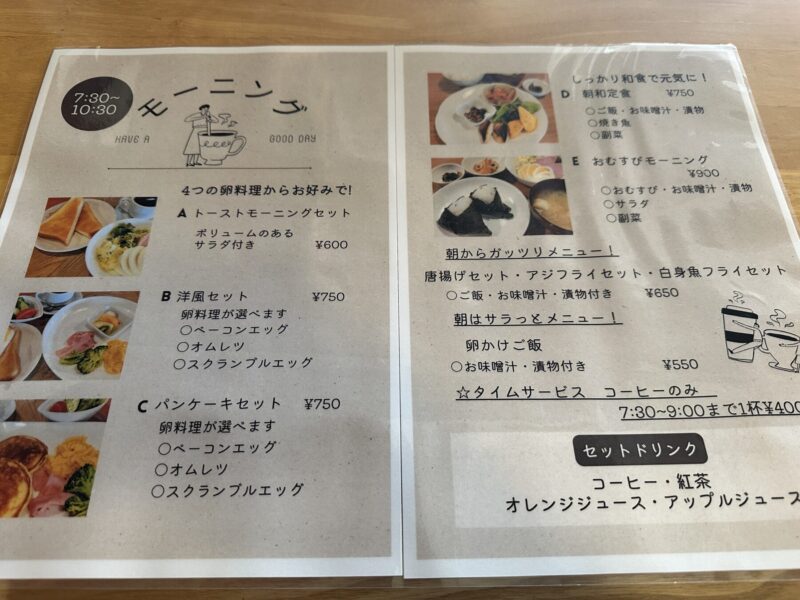 7:30~
10:30
モーニング
HAVE A
GOOD DAY
4つの卵料理からお好みで!
A トーストモーニングセット
ボリュームのある
サラダ付き ¥600
B 洋風セット ¥750
卵料理が選べます
○ベーコンエッグ
○オムレツ
○スクランブルエッグ
C パンケーキセット ¥750
卵料理が選べます
○ベーコンエッグ
○オムレツ
○スクランブルエッグ
しっかり和食で元気に!
D 朝和定食 ¥750
○ご飯・お味噌汁・漬物
○焼き魚
○副菜
E おむすびモーニング
¥900
○おむすび・お味噌汁・漬物
○サラダ
○副菜
朝からガッツリメニュー!
唐揚げセット・アジフライセット・白身魚フライセット
○ご飯・お味噌汁・漬物付き ¥650
朝はサラっとメニュー!
卵かけご飯
○お味噌汁・漬物付き ¥550
☆タイムサービス コーヒーのみ
7:30~9:00まで1杯¥400
セットドリンク
コーヒー・紅茶
オレンジジュース・アップルジュース